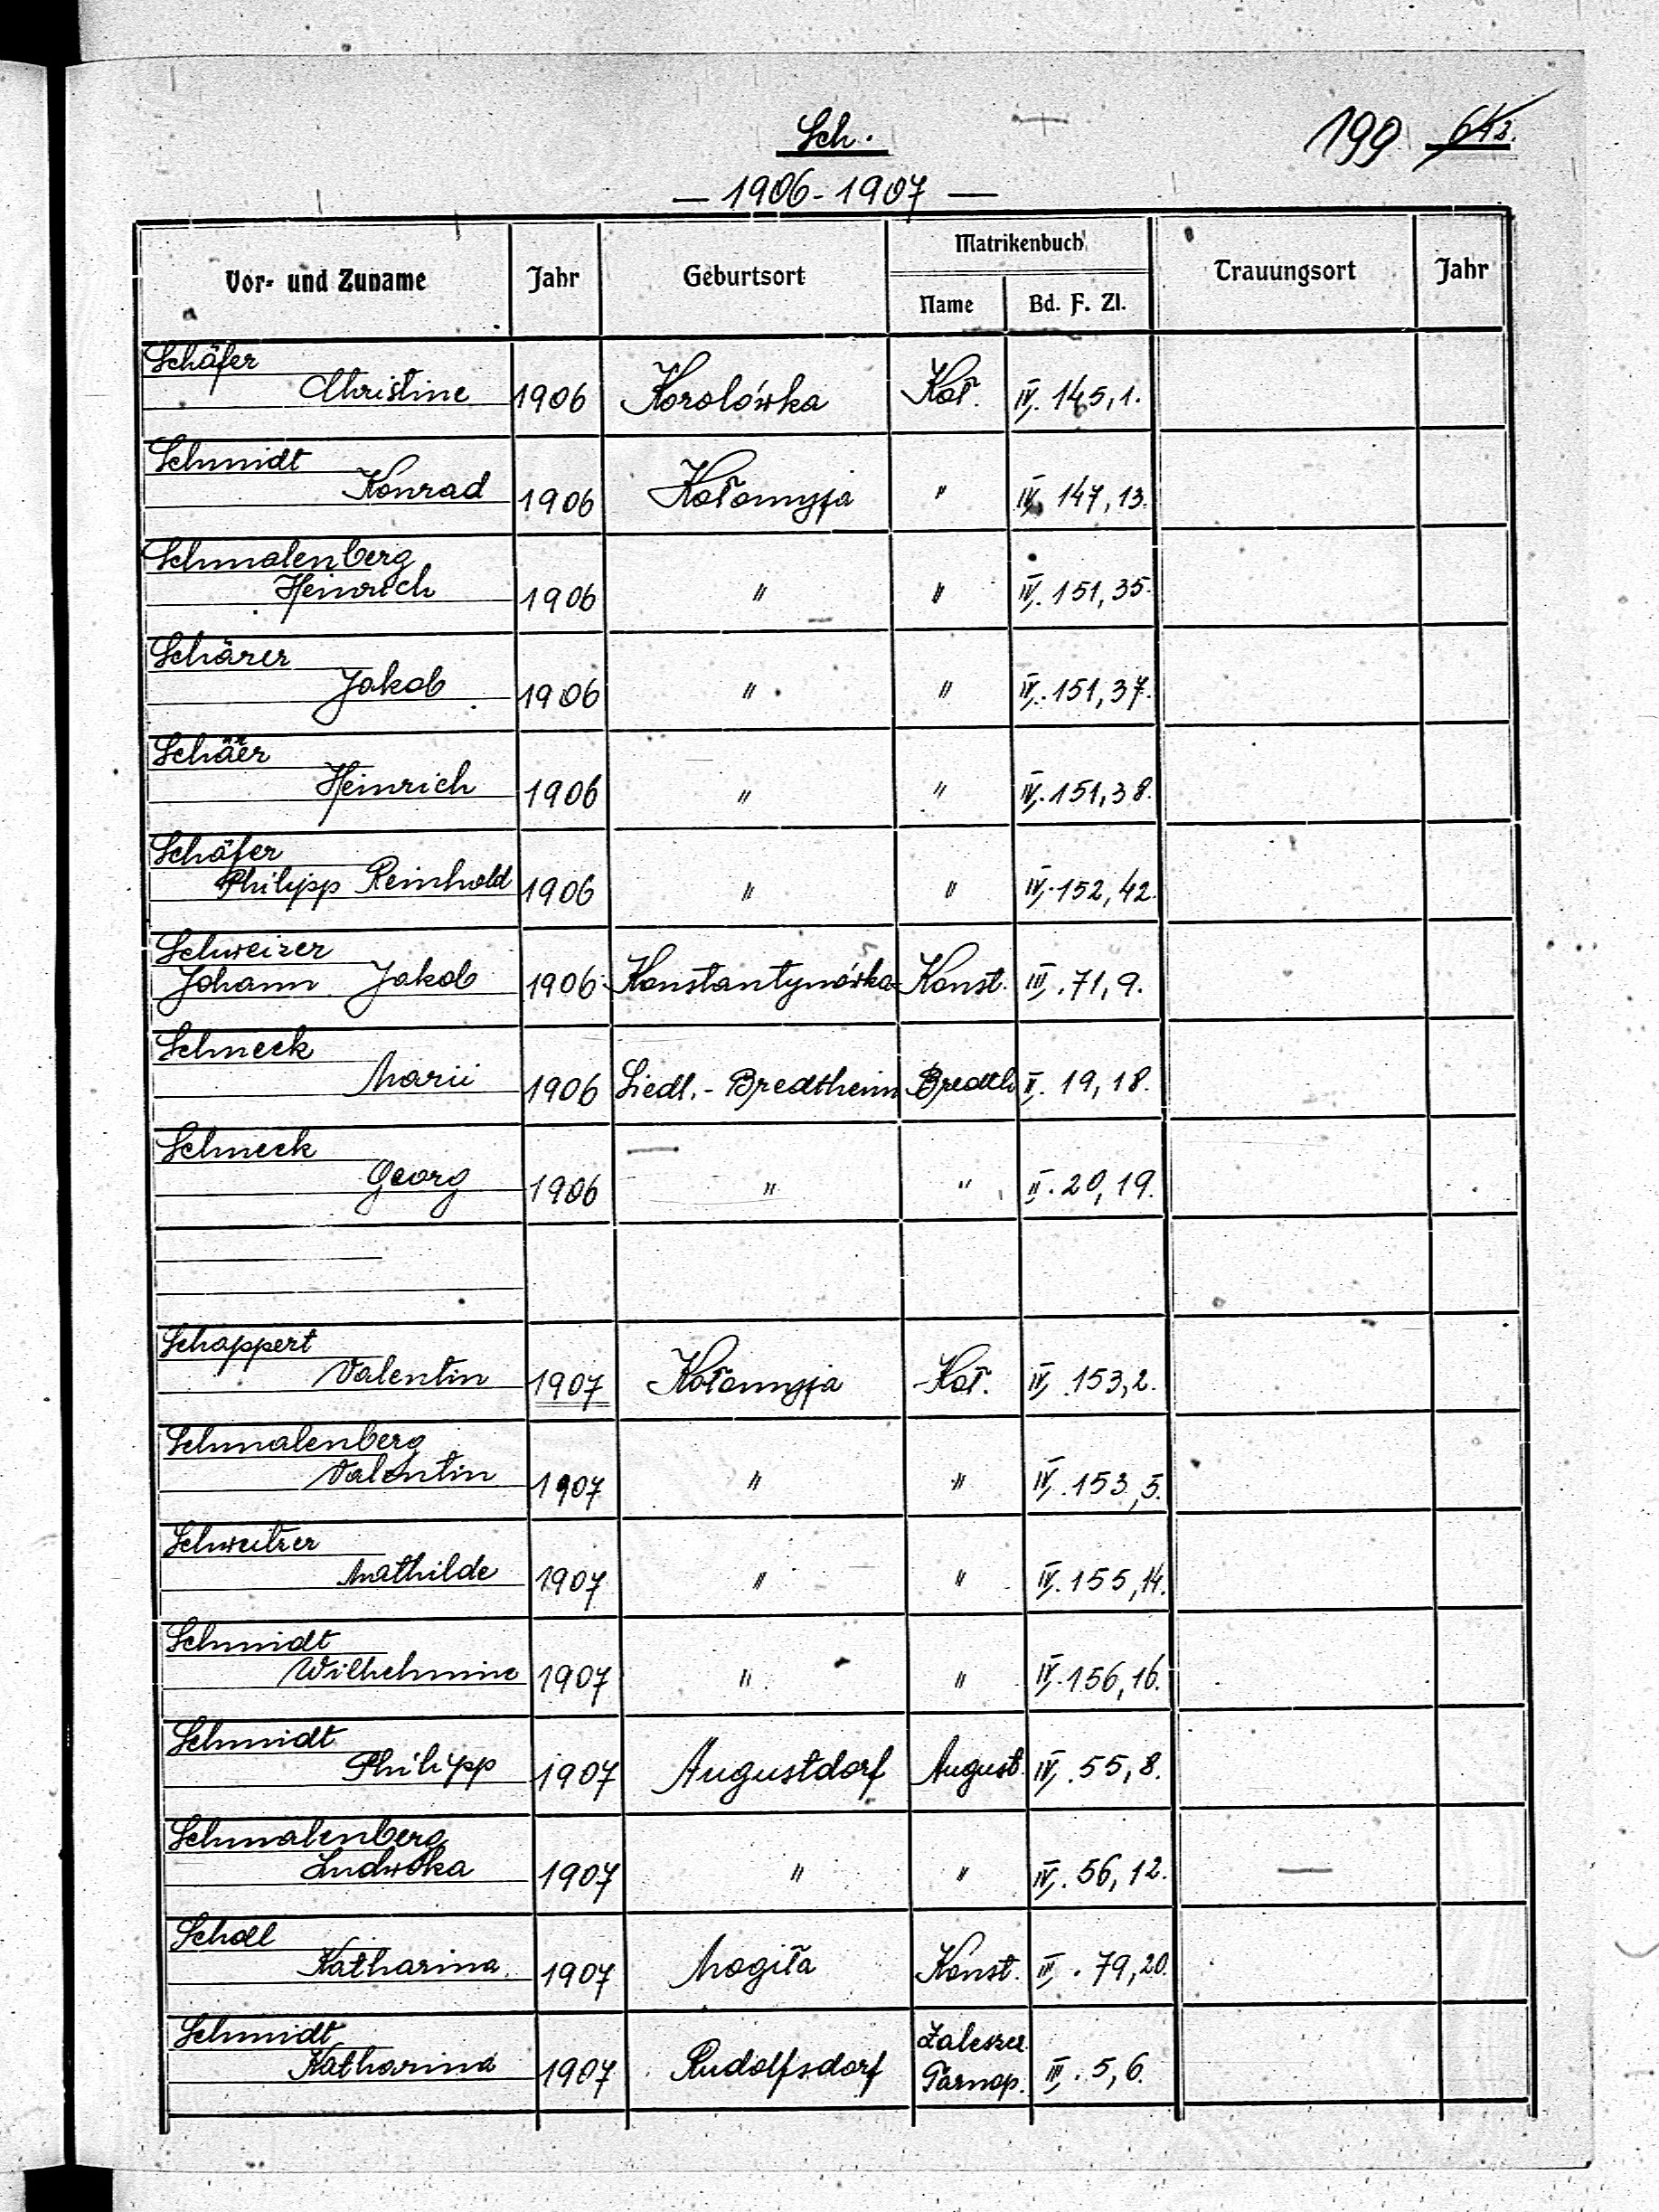 Sch. 199 642.
— 1906-1907 —
Vor- und Zuname Jahr Geburtsort Matrikenbuch Trauungsort Jahr
Name Bd. F. Zl.
Schäfer
Christine 1906 Korolówka Koł. IV. 145,1.
Schmidt
Konrad 1906 Kołomyja " IV. 147,13.
Schmalenberg
Heinrich 1906 " " IV. 151,35.
Schärer
Jakob 1906 " " IV. 151,37.
Schäer
Heinrich 1906 " " IV. 151,38.
Schäfer
Philipp Reinhold 1906 " " IV. 152,42.
Schweizer
Johann Jakob 1906 Konstantynówka Konst. III. 71,9.
Schneck
Marii 1906 Siedl.-Bredtheim Bredth II. 19,18.
Schneck
Georg 1906 " " II. 20,19.
Schappert
Valentin 1907 Kołomyja Koł. IV. 153,2.
Schmalenberg
Valentin 1907 " " IV. 153,5.
Schweitzer
Mathilde 1907 " " IV. 155,14.
Schmidt
Wilhelmine 1907 " " IV. 156,16.
Schmidt
Philipp 1907 Augustdorf August. IV. 55,8.
Schmalenberg
Ludwika 1907 " " IV. 56,12. —
Scholl
Katharina 1907 Mogiła Konst. III. 79,20.
Schmidt
Katharina 1907 Rudolfsdorf Zaleszcz. Tarnop. III. 5,6.